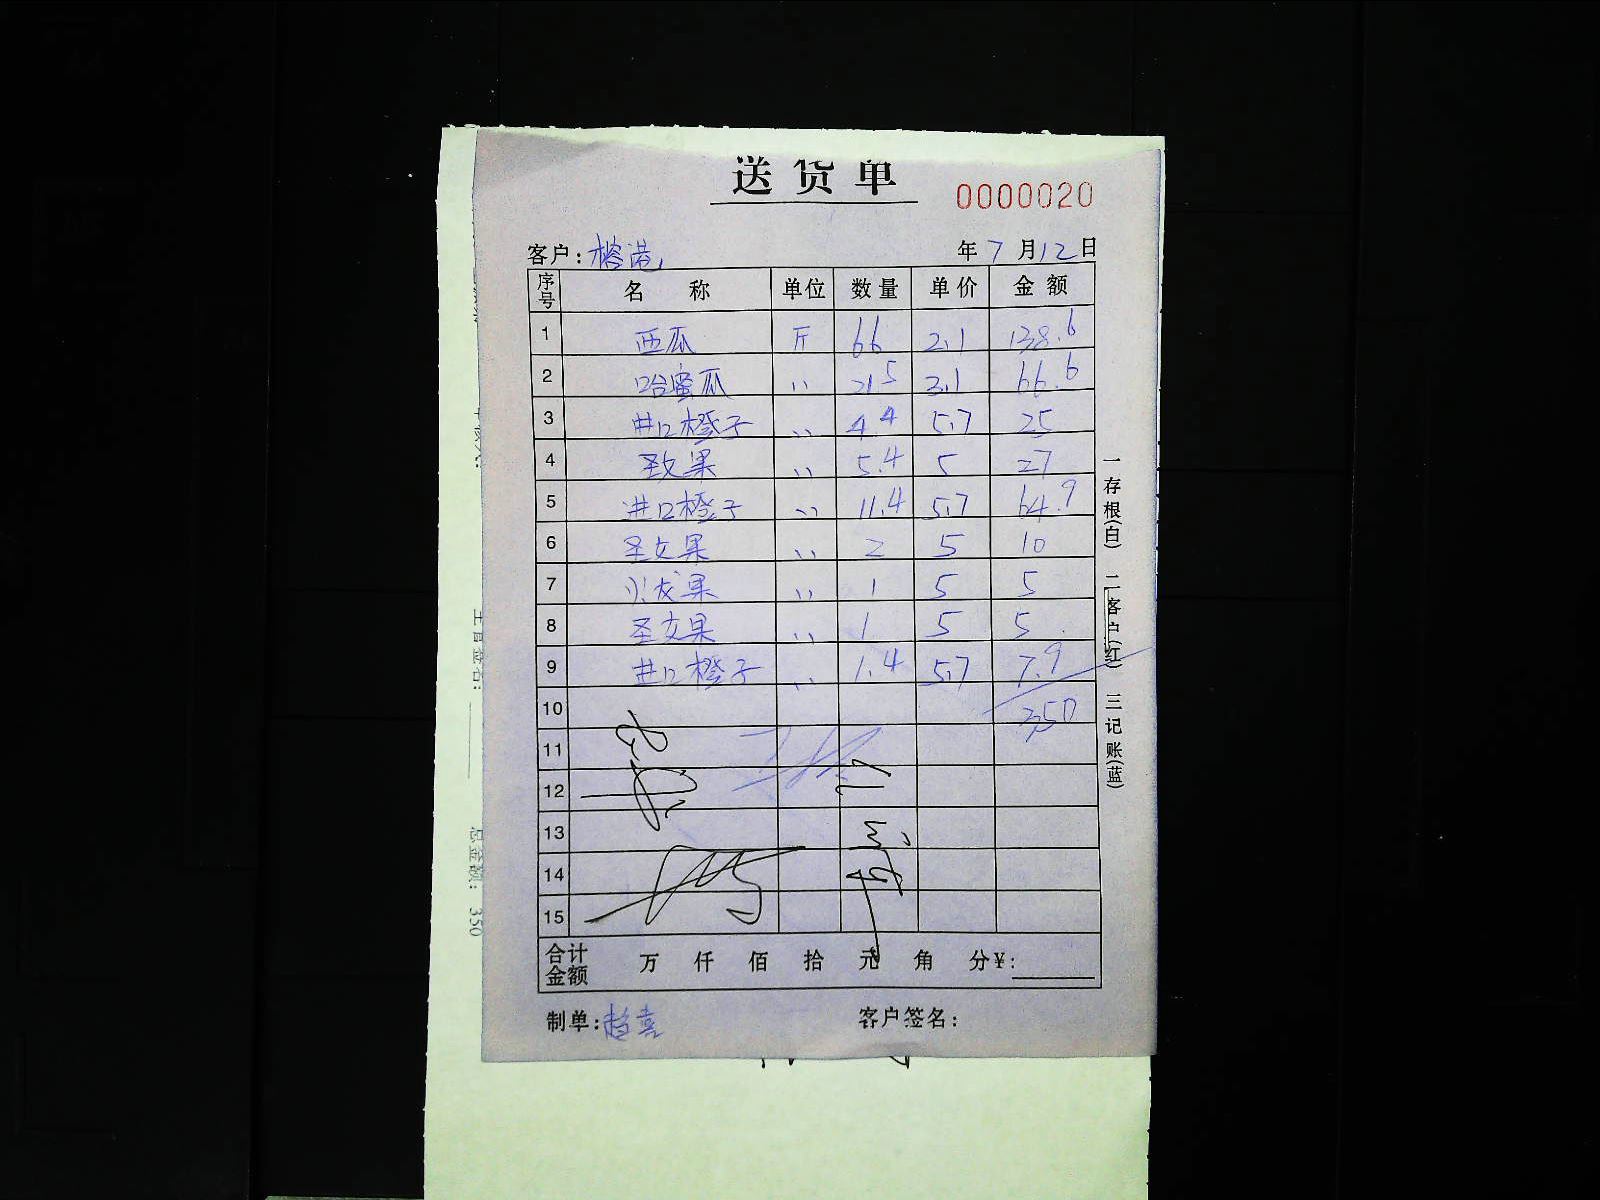 送货单
0000020
客户: 榕港 年 7 月 12 日
序号 名称 单位 数量 单价 金额
1 西瓜 斤 66 2.1 138.6
2 哈蜜瓜 〃 21.5 3.1 66.6
3 进口橙子 〃 4.4 5.7 25
4 圣女果 〃 5.4 5 27
5 进口橙子 〃 11.4 5.7 64.9
6 圣女果 〃 2 5 10
7 火龙果 〃 1 5 5
8 圣女果 〃 1 5 5
9 进口橙子 〃 1.4 5.7 7.9
10 350
11
12
13
14
15
合计金额 万 仟 佰 拾 元 角 分 ¥:
制单: 赵喜 客户签名:
一存根(白) 二客户(红) 三记账(蓝)
总金额: 350